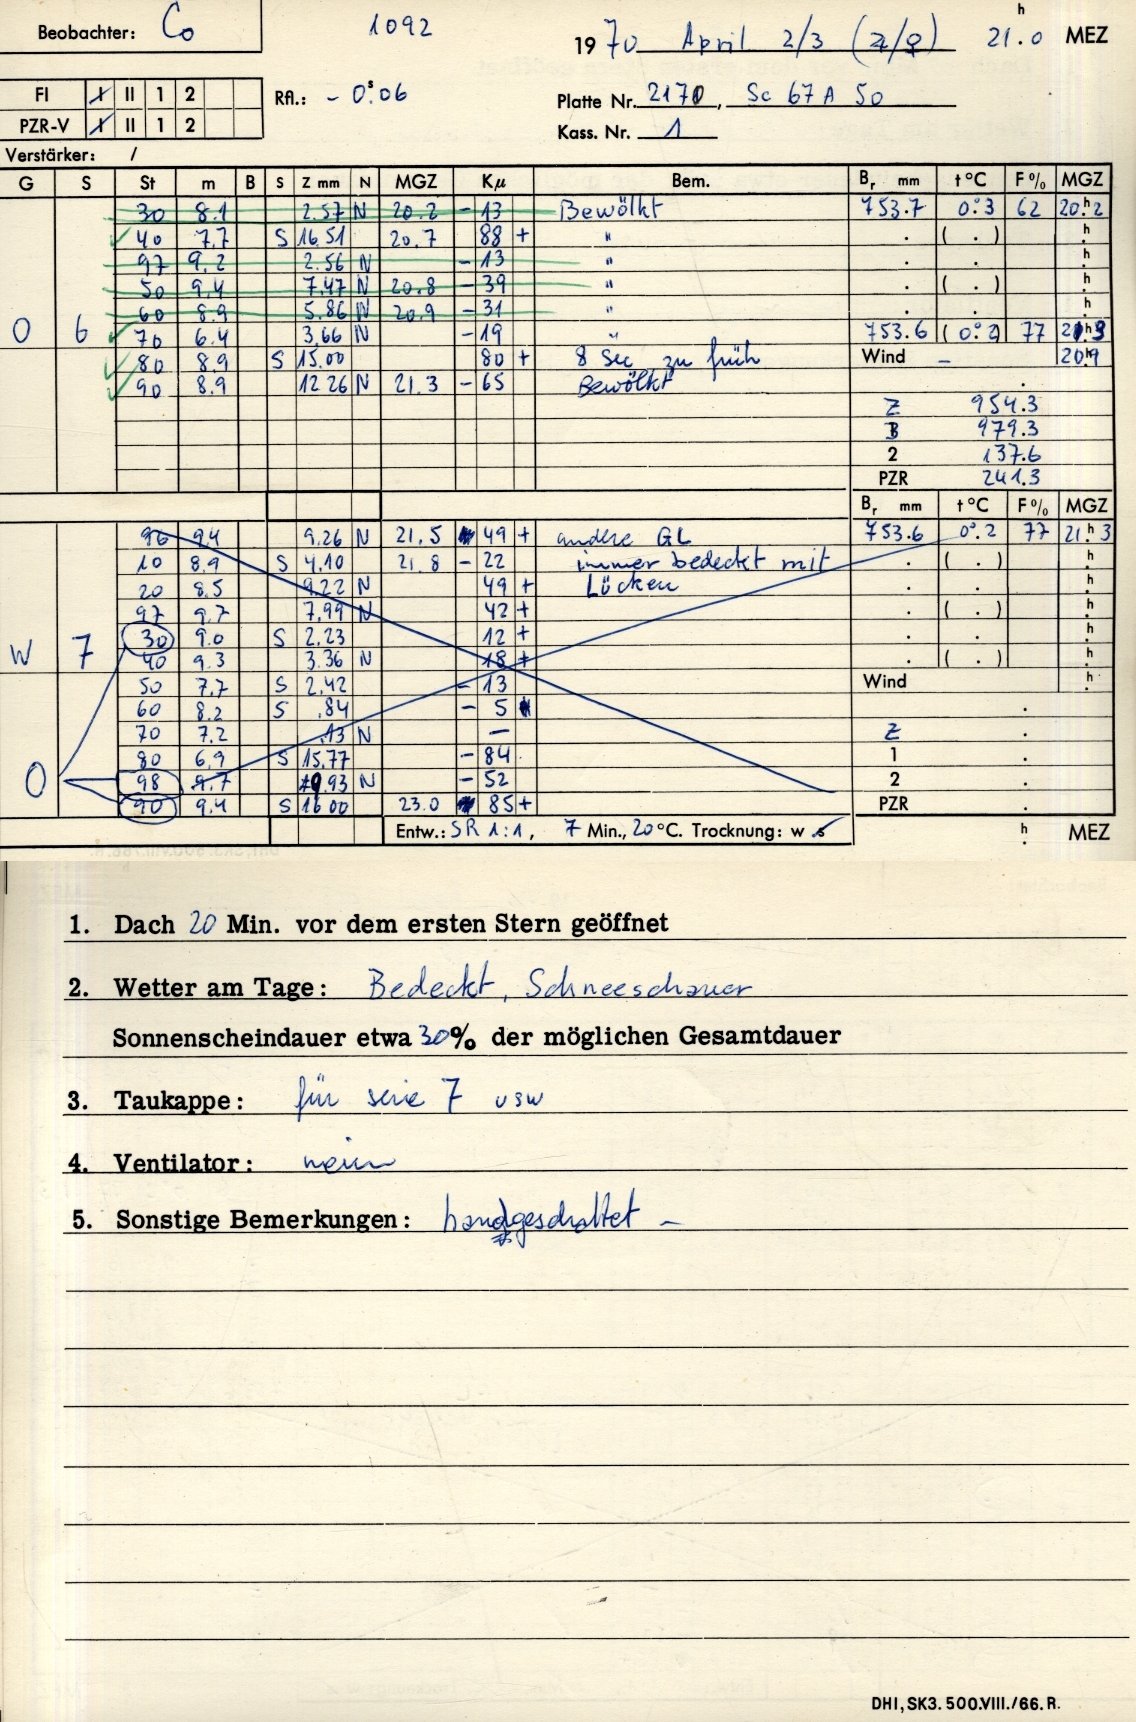 Beobachter: Co 1092 1970 April 2/3 (♃/♀) 21.0 h MEZ
FI I II 1 2 RA.: - 0.s06 Platte Nr. 2170, Sc 67 A 50
PZR-V I II 1 2 Kass. Nr. 1
Verstärker: /
G S St m B S Z mm N MGZ Kμ Bem. Br mm t°C F% MGZ
30 8.1 2.57 N 20.2 - 13 Bewölkt 753.7 0.3 62 20.h2
40 7.7 S 16.51 20.7 88 + " . ( . ) h
97 9.2 2.56 N - 13 " . . h
50 9.4 7.47 N 20.8 - 39 " . ( . ) h
60 8.9 5.86 N 20.9 - 31 " . . h
O 6 70 6.4 3.66 N - 19 " 753.6 (0.2) 77 h
80 8.9 S 15.00 80 + 8 Sec zu früh Wind - 20h9
90 8.9 12 26 N 21.3 - 65 Bewölkt .
Z 954.3
979.3
2 137.6
PZR 241.3
Br mm t°C F% MGZ
96 9.4 9.26 N 21.5 49 + andere GL 753.6 0.2 77 21.h3
10 8.9 S 4.10 21.8 - 22 immer bedeckt mit . ( . ) h
20 8.5 9.22 N 49 + Lücken . . h
97 9.7 7.99 N 42 + . ( . ) h
W 7 30 9.0 S 2.23 12 + . . h
40 9.3 3.36 N 18 + . ( . ) h
50 7.7 S 2.42 - 13 Wind h
60 8.2 S .84 - 5 .
70 7.2 .13 N — Z .
80 6.9 S 15.77 - 84 1 .
O 98 9.7 9.93 N - 52 2 .
90 9.4 S 16 00 23.0 85 + PZR .
Entw.: SR 1:1, 7 Min., 20°C. Trocknung: w s h MEZ
1. Dach 20 Min. vor dem ersten Stern geöffnet
2. Wetter am Tage: Bedeckt, Schneeschauer
Sonnenscheindauer etwa 30% der möglichen Gesamtdauer
3. Taukappe: für serie 7 usw
4. Ventilator: nein
5. Sonstige Bemerkungen: handgeschaltet -
DHI, SK3. 500.VIII./66. R.